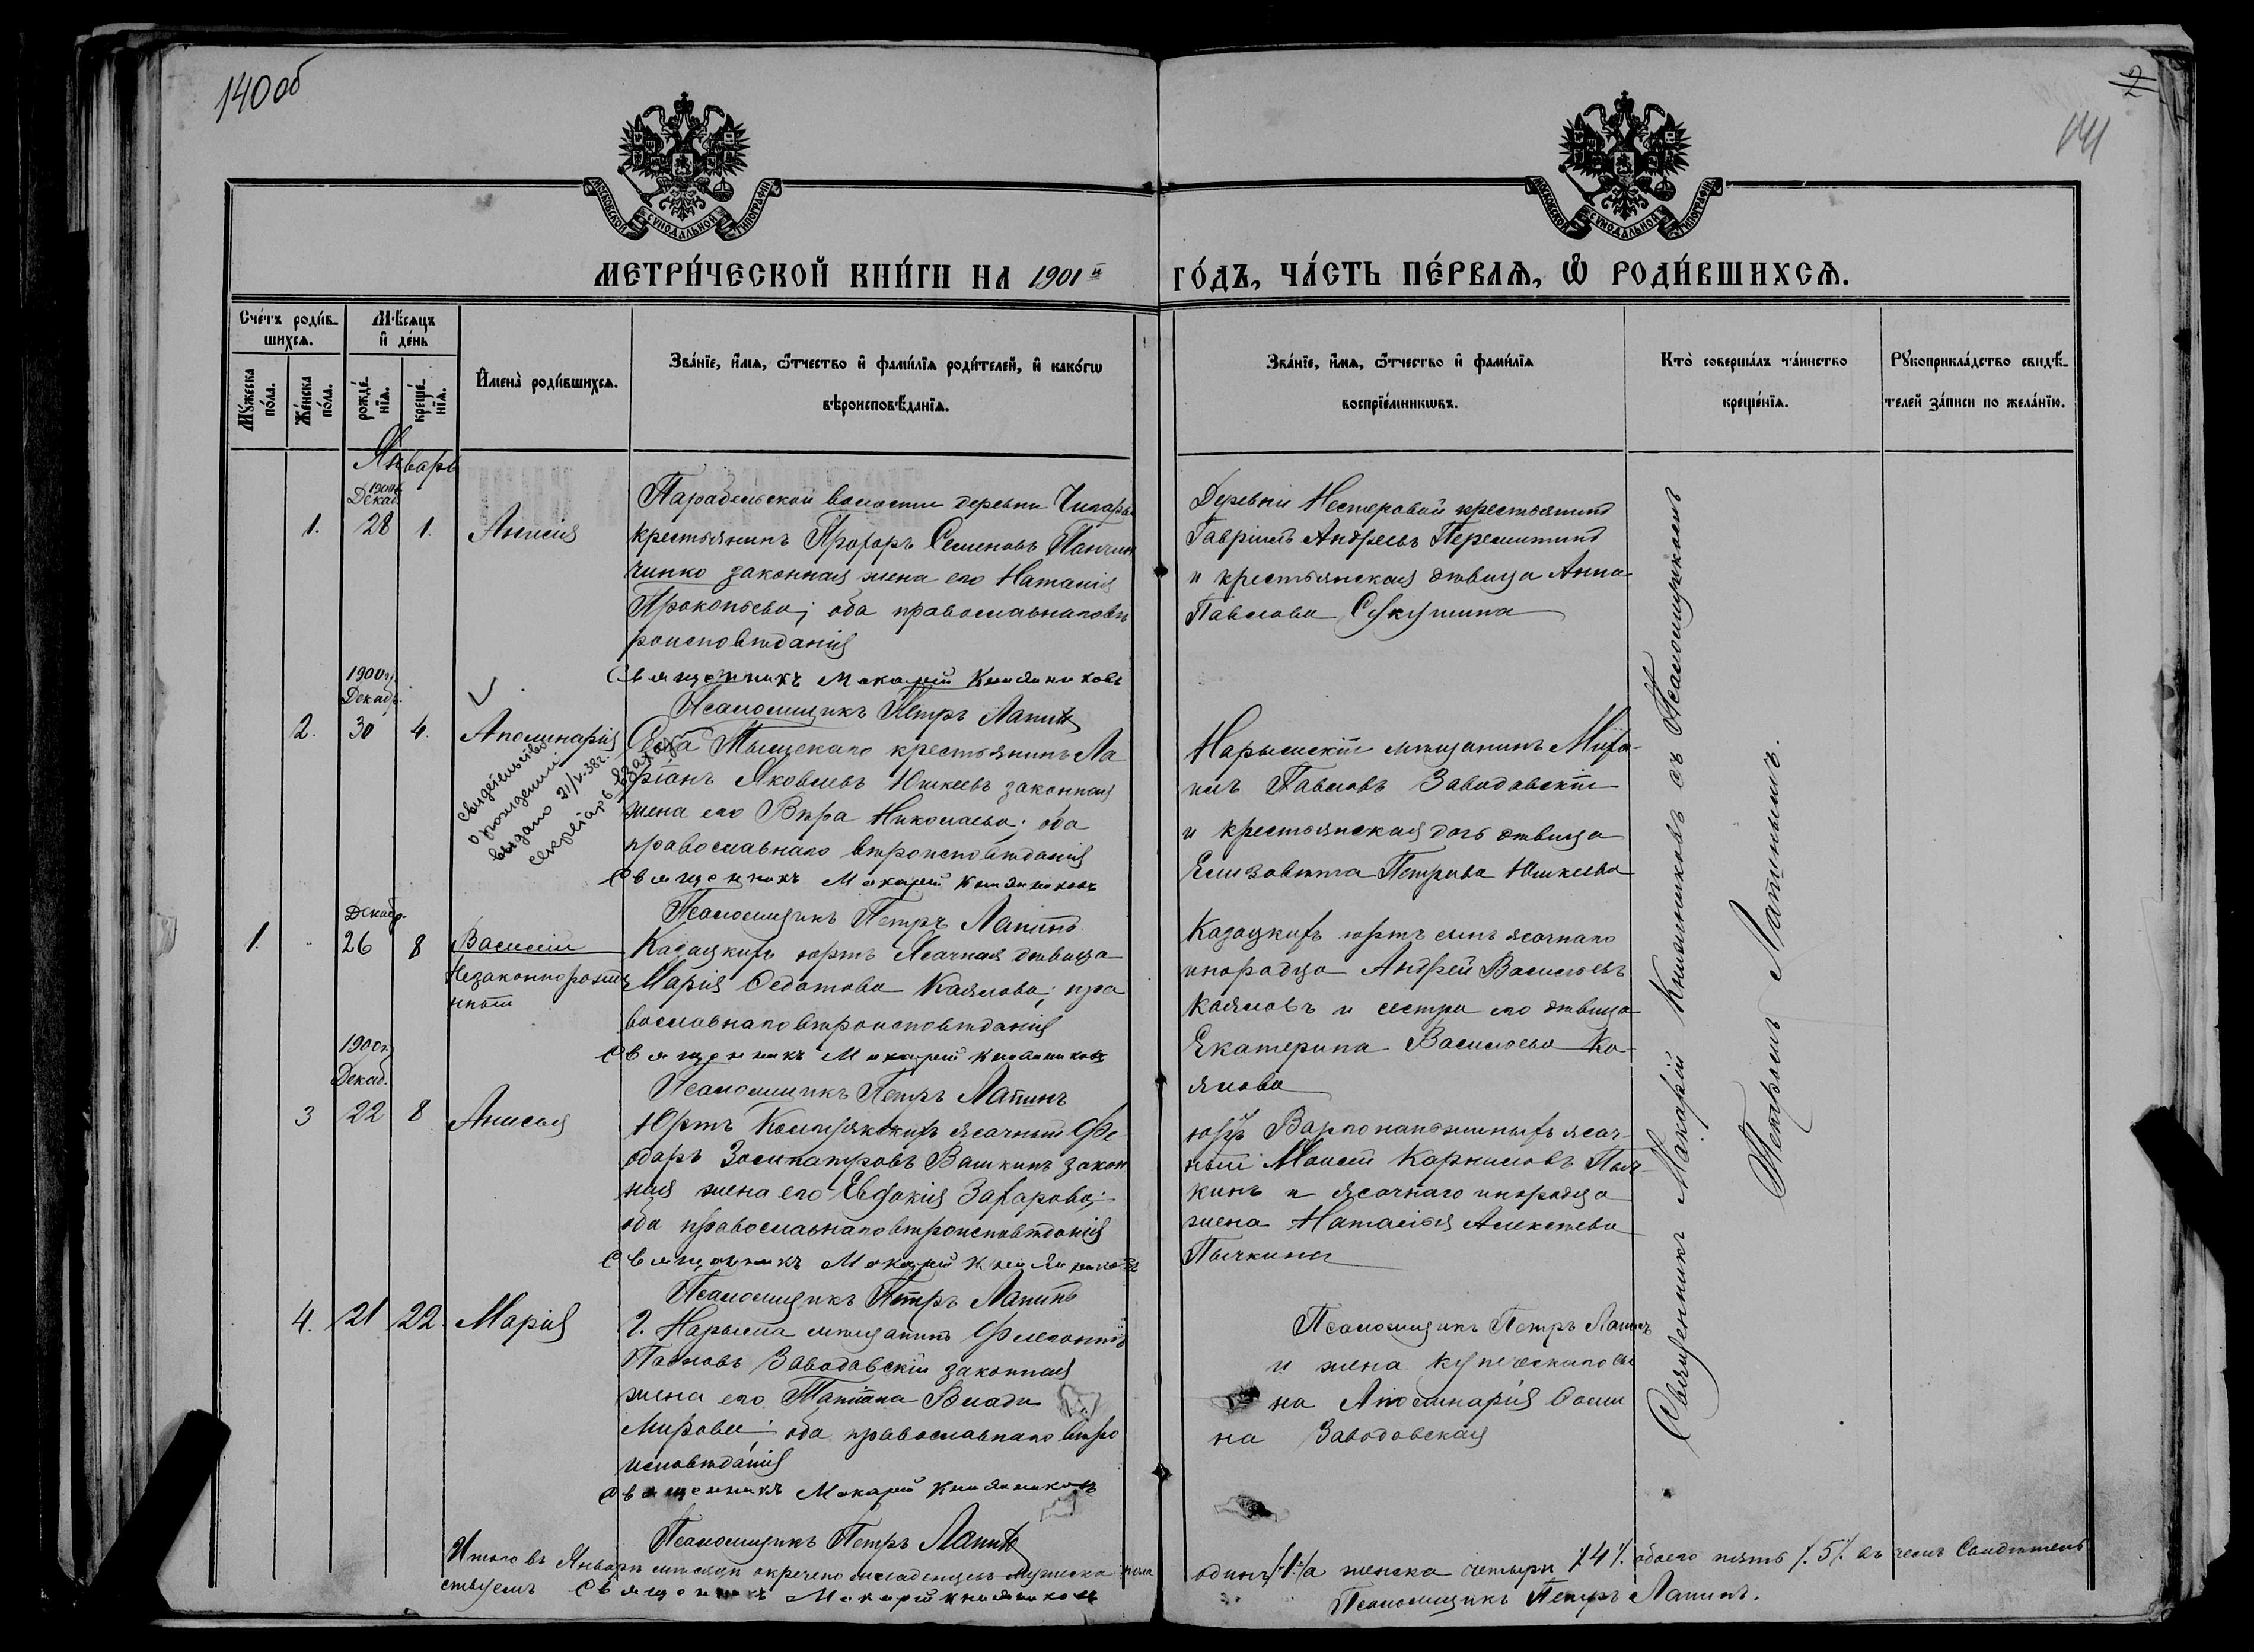 140 об
141
МОСКОВСКОЙ СѴНОДАЛЬНОЙ ТИПОГРАФІИ
МОСКОВСКОЙ СѴНОДАЛЬНОЙ ТИПОГРАФІИ
МЕТРИ́ЧЕСКОЙ КНИ́ГИ НА 1901й ГО́ДЪ, ЧА́СТЬ ПЕ́РВАѦ, Ѡ РОДИ́ВШИХСѦ.
Сче́тъ роди́в-
шихсѧ.
Мѣ́сѧцъ
и́ де́нь
Мꙋ́жеска
по́ла.
Же́нска
по́ла.
рожде́-
нїѧ.
креще́-
нїѧ.
И҆мена̀ роди́вшихсѧ.
Зва́нїе, и҆́мѧ, ѻ҆́тчество и҆ фами́лїѧ роди́телей, и҆ како́гѡ
вѣроисповѣ́данїѧ.
Зва́нїе, и҆́мѧ, ѻ҆́тчество и҆ фами́лїѧ
воспрїе́мникѡвъ.
Кто̀ соверша́лъ та́инство
креще́нїѧ.
Рꙋкоприкла́дство свидѣ́-
телей за́писи по жела́нїю.
Январь
1900г.
Декаб.
1. 28 1. Анисія
Парабельской волости деревни Чигары
крестьянинъ Прохоръ Семеновъ Панчин
чинко законная жена его Наталія
Прокопьева; оба православнаго вѣ
роисповѣданія
Священникъ Макарій Княжниковъ
Псаломщикъ Петръ Лапинъ
Деревни Нестеровой крестьянинъ
Гавріилъ Андреевъ Перемитинъ
и крестьянская дѣвица Анна
Павлова Сукушина
1900г.
Декабр.
2. 30 4. Аполинарія
Свидетельство
о рождении
выдано 21/V-38г.
секретарь
Тымскаго крестьянинъ Ла
ріанъ Яковлевъ Юшкеевъ законная
жена его Вѣра Николаева; оба
православнаго вѣроисповѣданія
Священникъ Макарій Княжниковъ
Псаломщикъ Петръ Лапинъ
Нарымскій мѣщанинъ Миха-
илъ Павловъ Заводовскій
и крестьянская дочь дѣвица
Елизавета Петрова Юшкеева
Декабр.
1. 26 8 Василій
Незаконнорожде
нный
Казацкихъ юртъ Ясачная дѣвица
Марія Федотова Каялова; пра
вославнаго вѣроисповѣданія
Священникъ Макарій Княжниковъ
Псаломщикъ Петръ Лапинъ
Казацкихъ юртъ сынъ ясачнаго
инородца Андрей Васильевъ
Каяловъ и сестра его дѣвица
Екатерина Васильева Ка-
ялова
1900г.
Декаб.
3 22 8 Анисья
Юртъ ясачный Фе
одоръ Зосипатровъ Вашкинъ закон
ная жена его Евдокія Захарова;
оба православнаго вѣроисповѣданія
Священникъ Макарій Княжниковъ
Псаломщикъ Петръ Лапинъ
юртъ ясач-
ный Моисей Карниловъ Пыч-
кинъ и ясачнаго инородца
жена Наталія Алексѣева
Пычкина
4. 21 22. Марія
Г. Нарыма мѣщанинъ Флегонтъ
Павловъ Заводовскій законная
жена его Татіана Влади
мирова; оба православнаго вѣро
исповѣданія
Священникъ Макарій Княжниковъ
Псаломщикъ Петръ Лапинъ
Псаломщикъ Петръ Лапинъ
и жена купеческаго сы
на Аполинарія Осипи
на Заводовская
Священникъ Макарій Княжниковъ съ Псаломщикомъ
Петромъ Лапинымъ.
Итого въ Январѣ мѣсяцѣ окрещено младенцевъ мужеска пола
одинъ /:1:/ а женска четыри /:4:/. обоего пять /:5:/. въ чемъ свидѣтель
ствуемъ Священникъ Макарій Княжниковъ
Псаломщикъ Петръ Лапинъ.